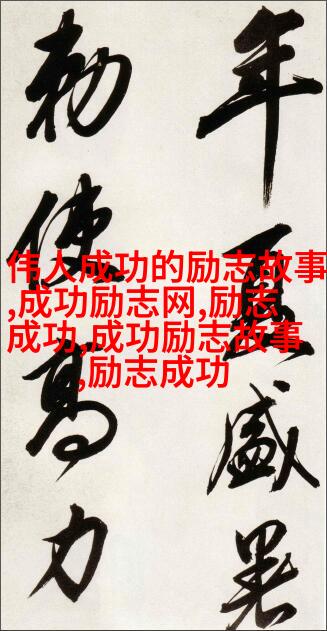 年夏盛暑
勅使高力
伟人成功的励志故事
,成功励志网,励志
成功,成功励志故事
,励志成功